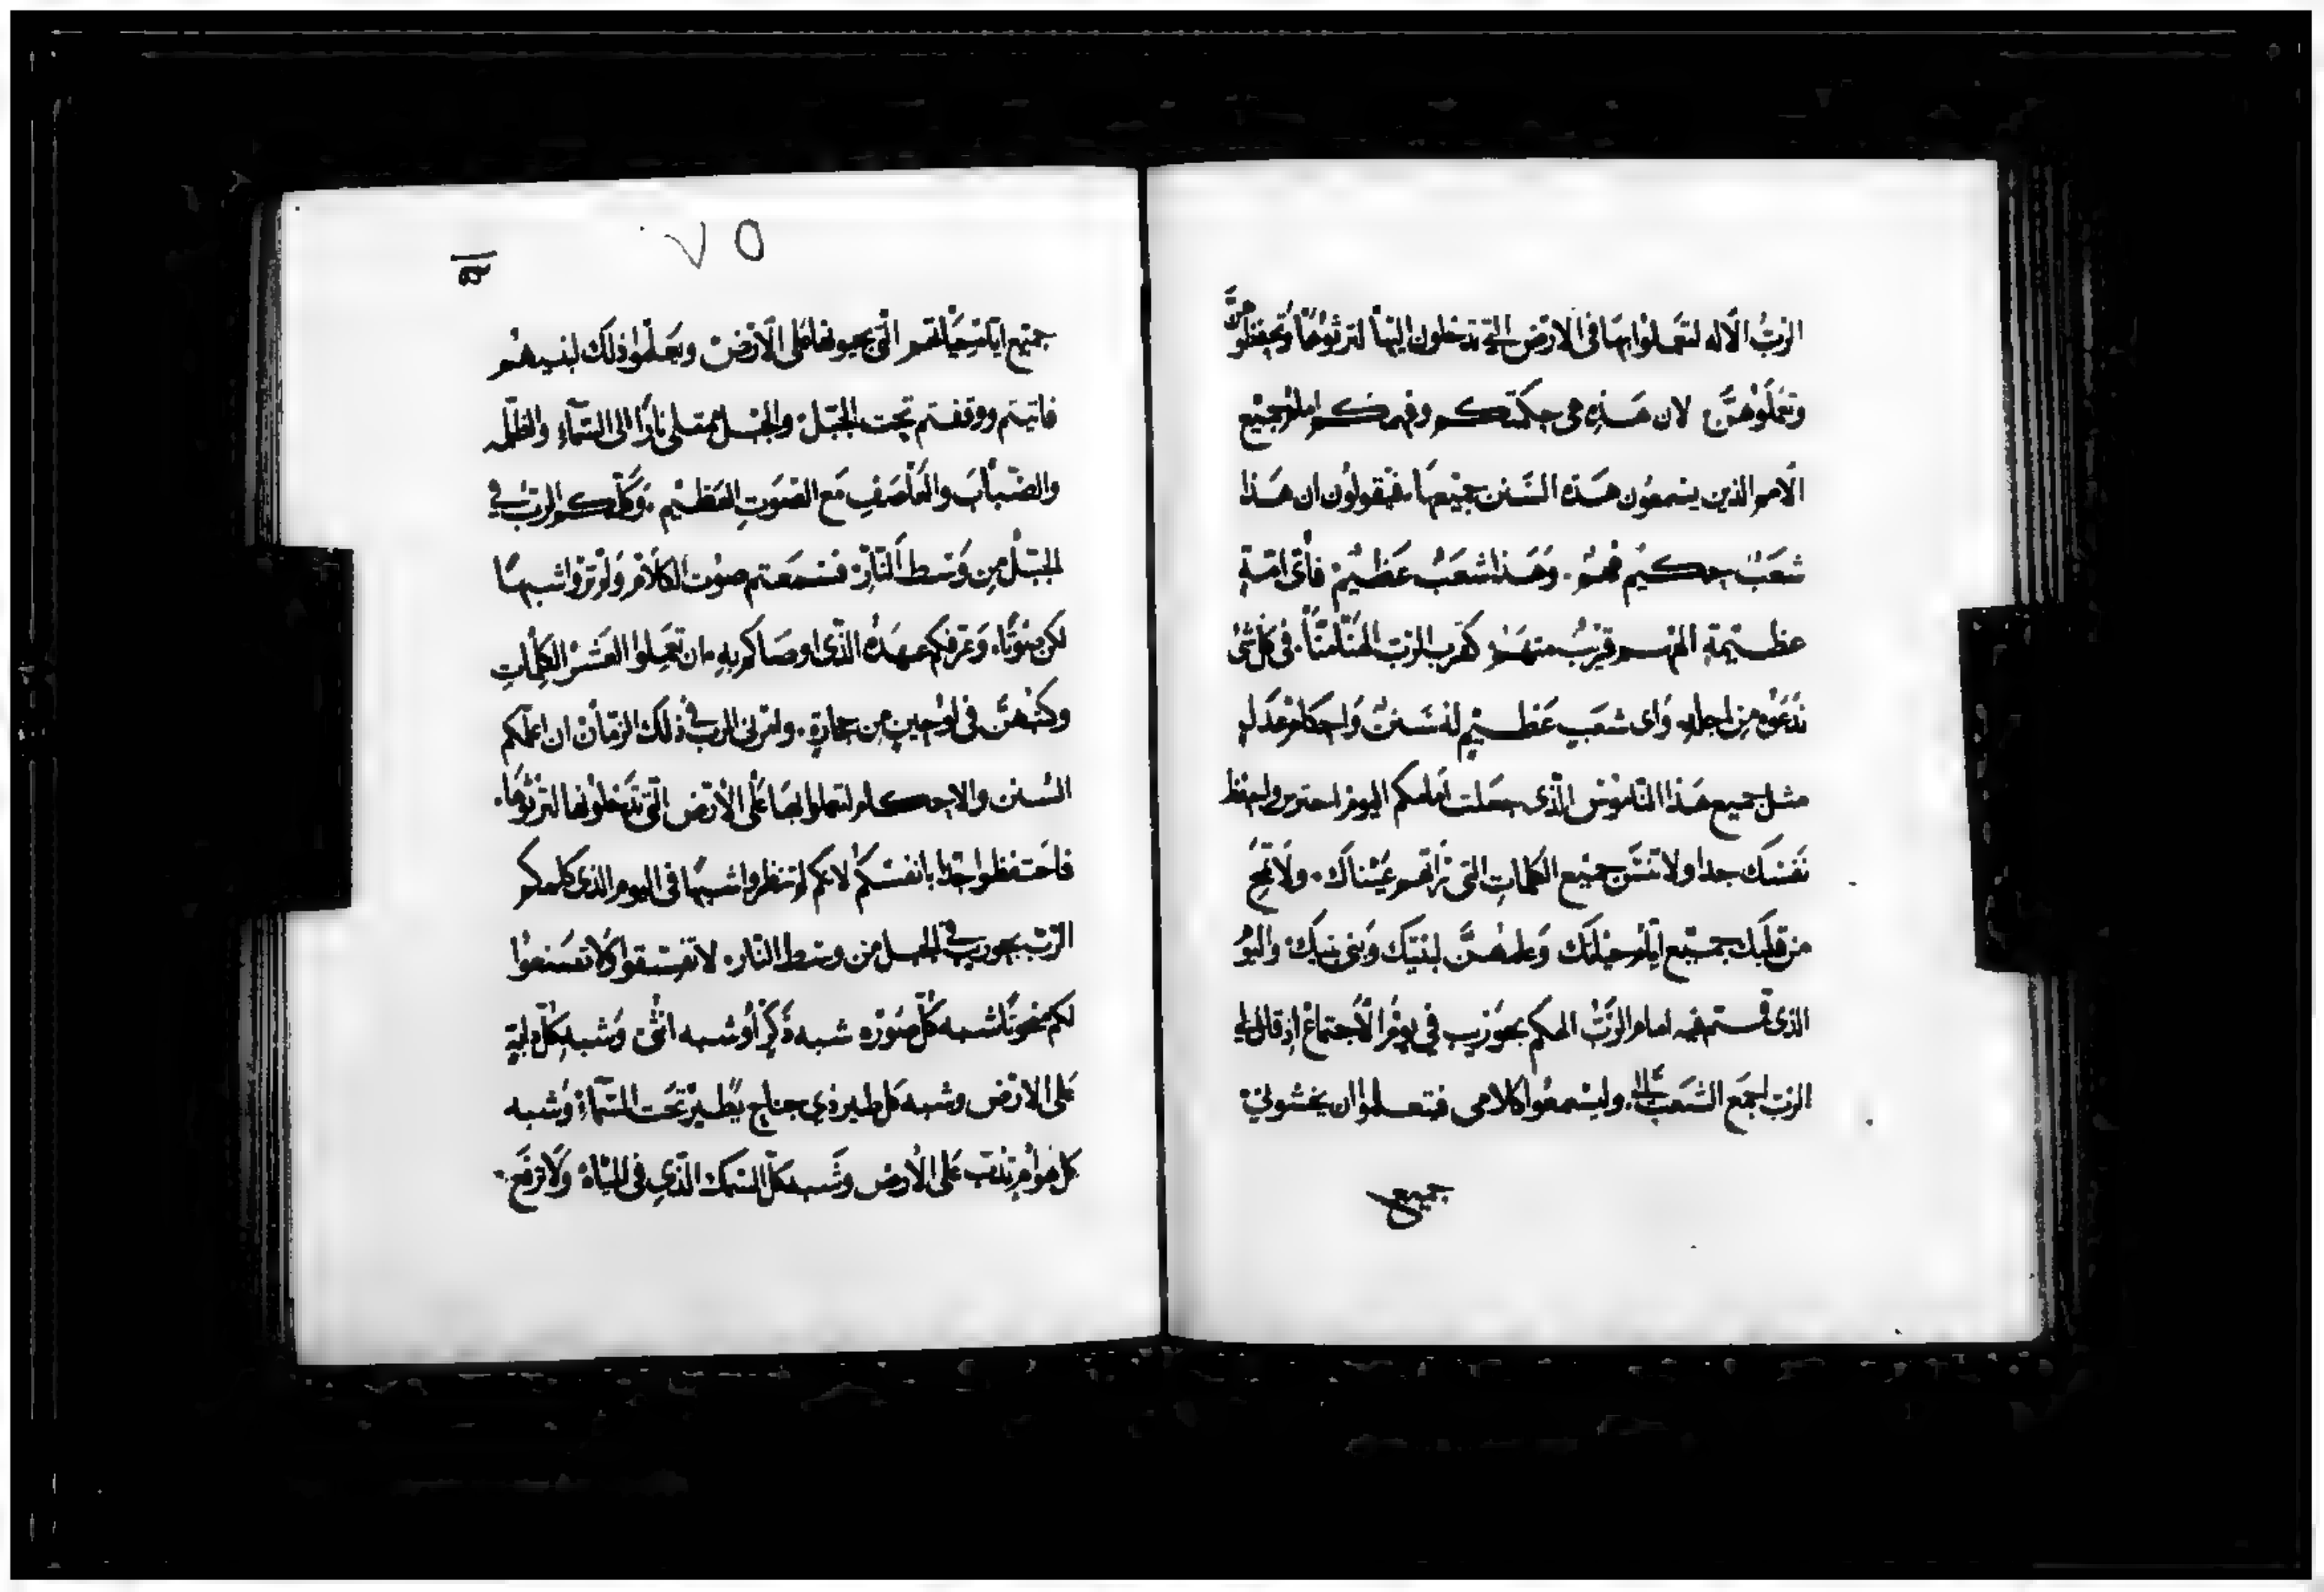 الرَّبُّ الاله لتعملوا بها فى الارض التى تدخلون اليها لترثوها وتحفظوهنَّ
وتعملوهنَّ لان هذه هى حكمتكم وفهمكم امام جميع
الامم الذين يسمعون هذه السنن جميعها. فيقولون ان هذا
شعب حكيم فهم. وهذا شعب عظيم فأى امة
عظيمة الههم قريب منهم كقرب الرب الهنا منا. فى كل شى
ندعوه من اجله واى شعب عظيم له سنن واحكام عدل
مثل جميع هذا الناموس الذى جعلت امامكم اليوم احترس واحفظ
نفسك جدا ولا تنس جميع الكلمات التى رأتهم عيناك. ولا تمح
من قلبك جميع ايام حياتك وعلمهن لبنيك وبنى بنيك. واليوم
الذى قمتم فيه امام الرب الهكم بحوريب في يوم الاجتماع اذ قال لى
الرب اجمع الشعب الىَّ. وليسمعوا كلامى فيتعلموا ان يخشونى
جميع
٧٥
جميع ايام حياتهم التى يحيونها على الارض ويعلموا ذلك لبنيهم
فاتيتم ووقفتم تحت الجبل والجبل يمتلى نارا الى السماء والظلمه
والضباب والعاصف مع الصوت العظيم. وكلمكم الرب في
الجبل من وسط النار فسمعتم صوت الكلام ولم تروا شبها
لكن صوتا. وعرفكم عهده الذى اوصاكم به. ان تعملوا العشر الكلمات
وكتبهن فى لوحين من حجارة. وامرنى الرب في ذلك الزمان ان اعلمكم
السنن والاحكام لتعملوا بها على الارض التى تدخلونها لترثوها.
فاحتفظوا جدا بانفسكم لانكم لم تنظروا شبها فى اليوم الذى كلمكم
الرب بحوريب في الجبل من وسط النار. لا تفسقوا ولا تصنعوا
لكم منحوتا شبه كل صوره شبه ذكر أو شبه انثى وشبه كل دابة
على الارض وشبه كل طير ذي جناح يطير تحت السماء وشبه
كل هوام تدب على الارض وشبه كل السمك الذي فى المياه ولا ترفع